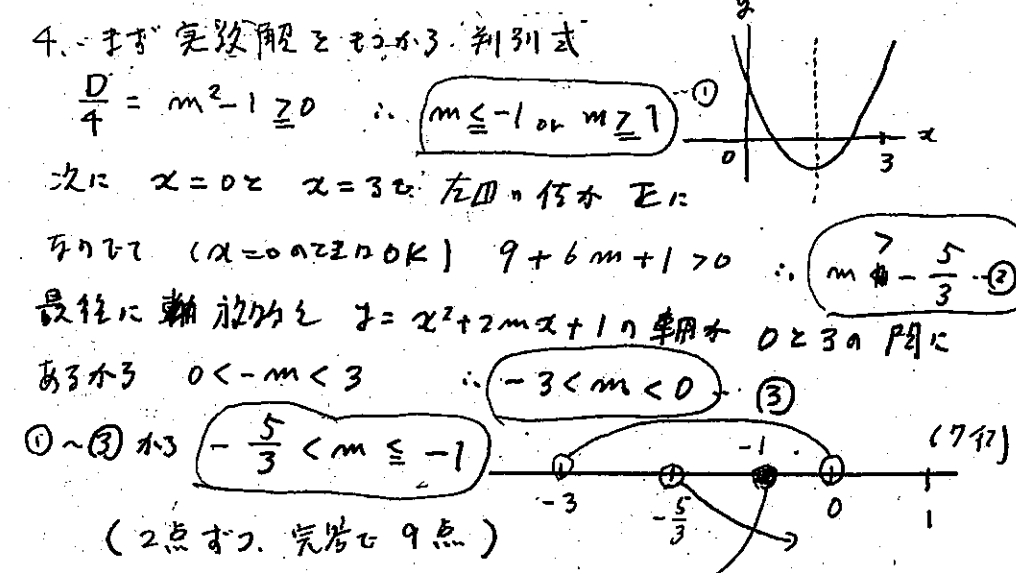 4. まず実数解をもつから 判別式
D/4 = m²-1 ≧ 0 ∴ m ≦ -1 or m ≧ 1 …①
y
x
0
3
次に x=0と x=3で 左辺の値が 正に
なりて (x=0のときはOK) 9+6m+1>0 ∴ m > -5/3 …②
最後に 軸 放物線 y=x²+2mx+1の軸が 0と3の間に
あるから 0<-m<3 ∴ -3<m<0 …③
①~③から -5/3 < m ≦ -1
(7行)
-3 -5/3 -1 0 1
(2点ずつ、完答で 9点)